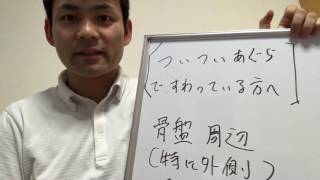 ついついあぐら
ですわっている方へ
骨盤 周辺
(特に外側)